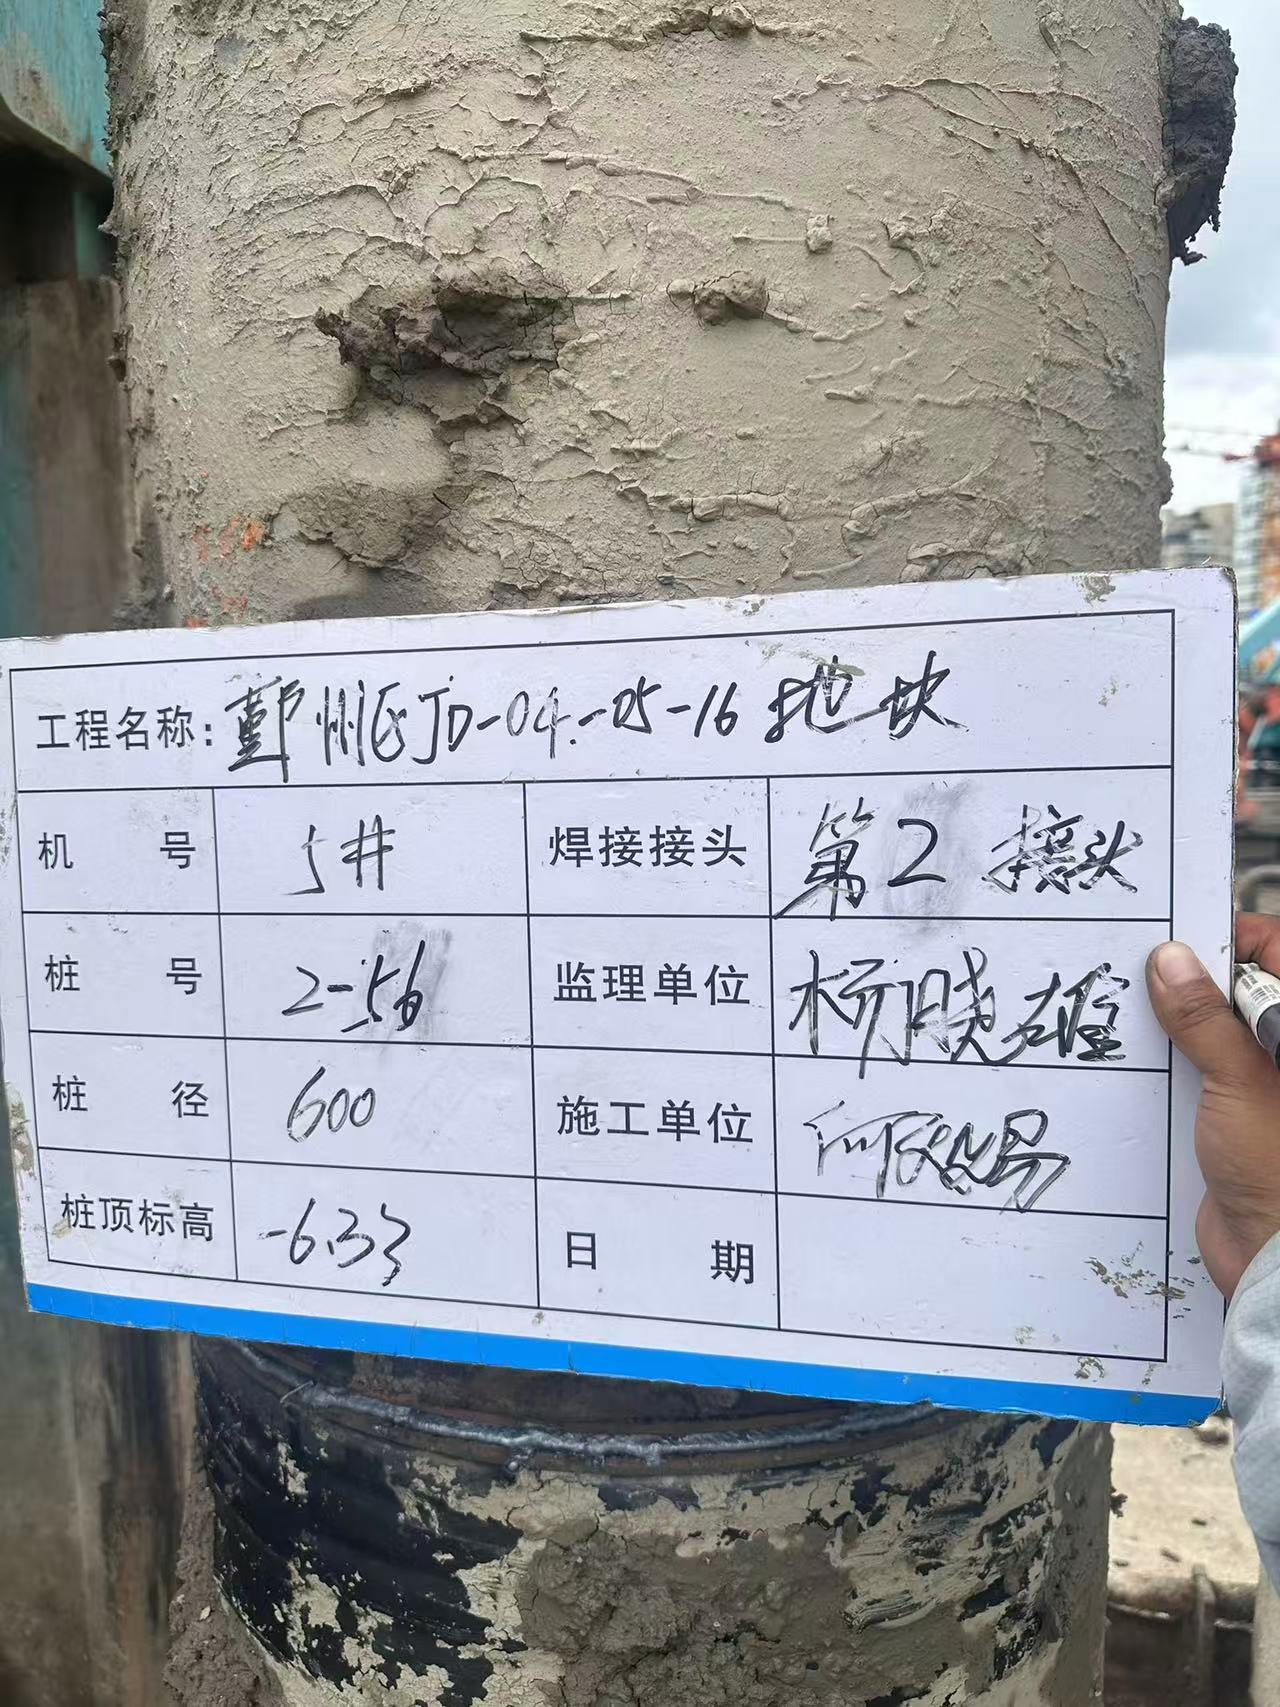 工程名称: 鄞州区JD-04-05-16地块
机号 5# 焊接接头 第2接头
桩号 2-56 监理单位 杨晓雄
桩径 600 施工单位 何
桩顶标高 -6.33 日期